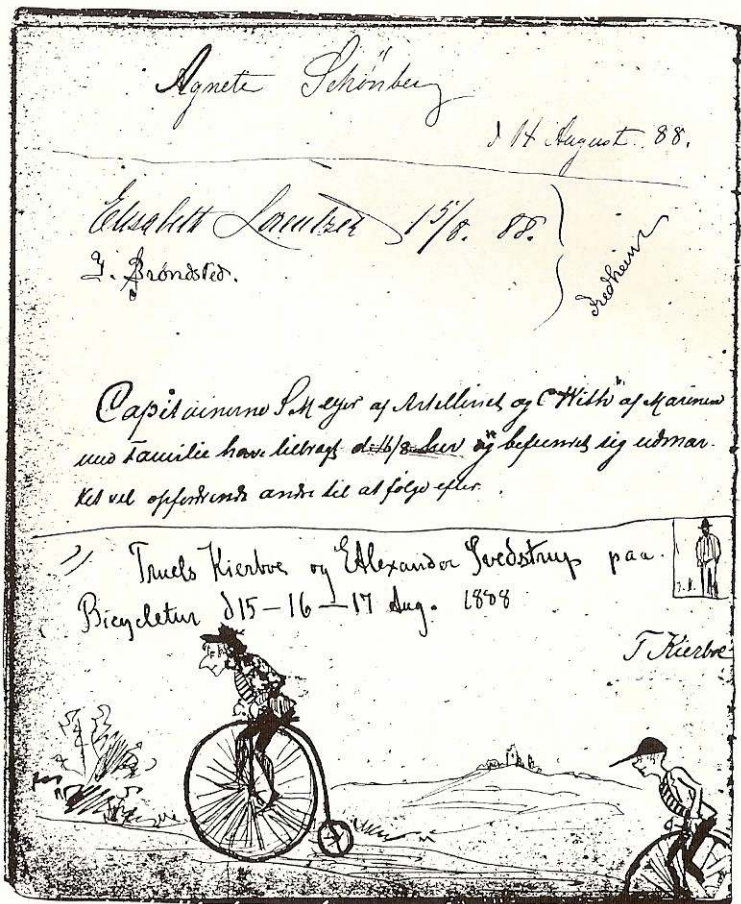 Agnete Schönberg
d 14 August 88.
Elisabeth Lorentzen 15/8. 88.
I. Brøndsted.
Fredheim
Capitainerne S Meyer af Artilleriet og C With af Marinen
med Familie have tilbragt d. 16/8 her og befundet sig udmær-
ket vel opfordrende andre til at følge efter.
Truels Kierboe og E Alexander Svedstrup paa
Bicycletur d 15-16-17 Aug. 1888
T Kierboe